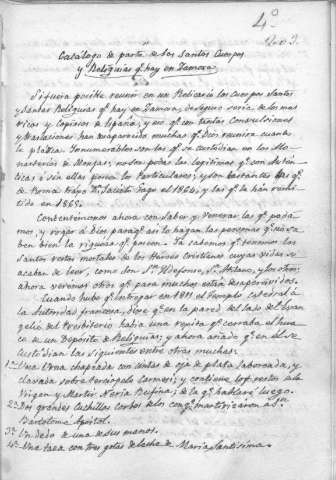 4.º
Catálogo de parte de los Santos Cuerpos
y Reliquias q.e hay en Zamora
Si fuera posible reunir en un Relicario los Cuerpos Santos
y Santas Reliquias q.e hay en Zamora, de seguro seria de los mas
ricos y copiosos de España, y eso q.e con tantas Convulsiones
y traslaciones han desaparecido muchas q.e Dios reuniera cuando
le plazca. Innumerables son las q.e se custodian en los Mo-
nasterios de Monjas; no son pocas las legitimas q.e con auten-
ticas, ó sin ellas poseen los Particulares; y son bastantes las q.e
de Roma trajo D.n Jacinto Sago el 1864, y las q.e le han remi-
tido en 1865.
Contentémonos ahora con saber y venerar las q.e poda-
mos, y rogar á Dios para q.e asi lo hagan las personas q.e no sa-
ben bien la riqueza q.e poseen. Ya sabemos q.e tenemos los
Santos restos mortales de los Héroes Cristianos cuyas vidas se
acaban de leer, como son S.n Ildefonso, S. Atilano, y los
ahora veremos otros q.e para muchos están desapercividos.
Cuando hubo q.e entregar en 1811 el templo catedral á
la Autoridad francesa, dice q.e en la pared del lado del Evan-
gelio del Presbiterio habia una rejita q.e cerraba el hue-
co de un Depósito de Reliquias; y ahora añado q.e en él se
custodian las siguientes entre otras muchas.
1.a Una Urna chapeada con cintas de oja de plata laborada, y
clavada sobre terciopelo Carmesi; y contiene los restos de la
Virgen y Martir Maria Rufina; de la q.e hablaré luego.
2.a Dos grandes Cuchillos corbos de los con q.e martirizaron á S.n
Bartolomé Apostol.
3.a Un dedo de una de sus manos.
4.a Una taza con tres gotas de leche de Maria Santisima.